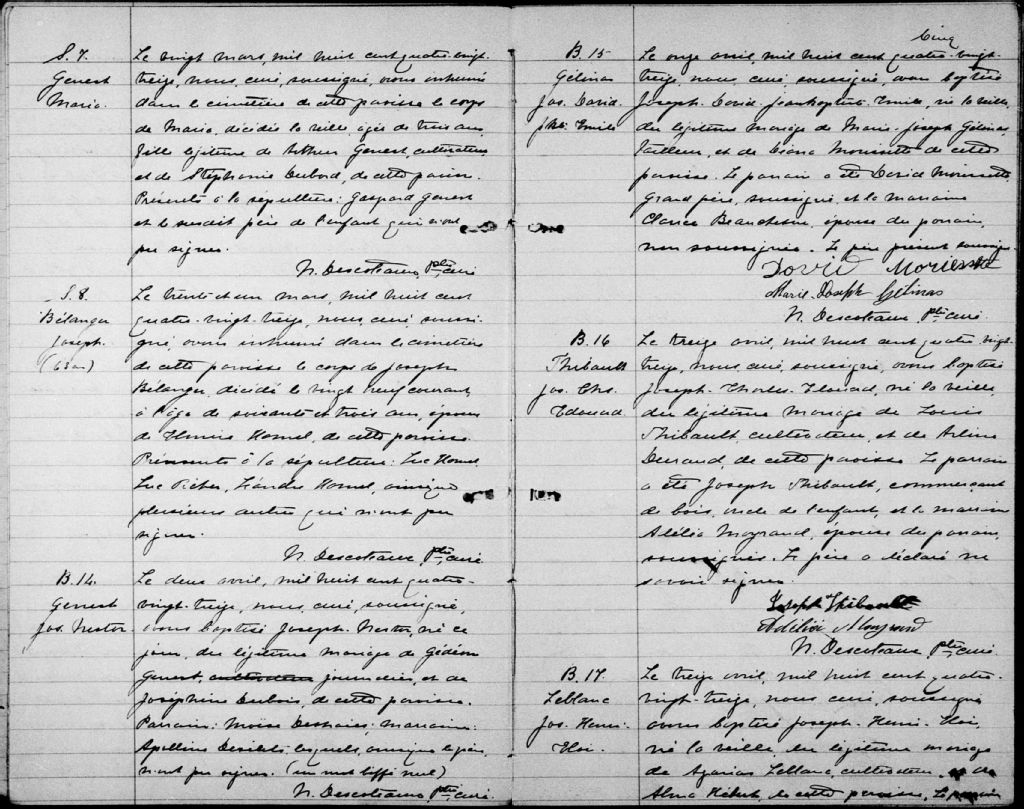 S. 7.
Genest
Maria.
Le vingt mars, mil huit cent quatre-vingt-
treize, nous, curé soussigné, avons inhumé
dans le cimetière de cette paroisse le corps
de Maria, décédée la veille, agée de trois ans,
fille légitime de Arthur Genest, cultivateur,
et de Stéphanie Dubord, de cette paroisse.
Présents à la sépulture: Gaspard Genest
et le susdit père de l'enfant qui n'ont
pu signer.
N. Descoteaux, Ptre, curé
S. 8.
Bélanger
Joseph.
(63 an)
Le trente et un mars, mil huit cent
quatre-vingt-treize, nous, curé, soussi-
gné, avons inhumé dans le cimetière
de cette paroisse le corps de Joseph
Bélanger, décédé le vingt neuf courant,
à l'âge de soixante et trois ans, époux
de Hamel, de cette paroisse.
Présents à la sépulture: Luc Hamel,
Luc Picher, Léandre Hamel, ainsi que
plusieurs autres qui n'ont pu
signer.
N. Descoteaux Ptre, curé
B. 14.
Genest
Jos. Nestor.
Le deux avril, mil huit cent quatre-
vingt-treize, nous, curé, soussigné,
avons baptisé Joseph-Nestor, né ce
jour, du légitime mariage de Gédéon
Genest, cultivateur journalier, et de
Joséphine Dubois, de cette paroisse.
Parrain: Moïse ; marraine:
Apolline Désilets, lesquels, ainsi que le père,
n'ont pu signer. (un mot biffé nul)
N. Descoteaux, Ptre, curé.
Cinq
B. 15
Gélinas
Jos. David.
J. Bte. Emile
Le onze avril, mil huit cent quatre-vingt-
treize, nous, curé, soussigné, avons baptisé
Joseph-David-Jean-Baptiste-Emile, né la veille,
du légitime mariage de Marie-Joseph Gélinas,
tailleur, et de Diana Morissette de cette
paroisse. Le parrain a été David Morissette,
Grand père, soussigné, et la marraine
Clarice Beauchesne, épouse du parrain,
non soussignée. Le père présent soussigné
David Morissette
Marie-Joseph Gélinas
N. Descoteaux, Ptre, curé.
B. 16
Thibault
Jos. Chs.
Edouard.
Le treize avril, mil huit cent quatre-vingt-
treize, nous, curé, soussigné, avons baptisé
Joseph-Charles-Edouard, né la veille,
du légitime mariage de Louis
Thibault, cultivateur, et de Arline
Durand, de cette paroisse. Le parrain
a été Joseph Thibault, commerçant
de bois, oncle de l'enfant, et la marraine
Adélia Mayrand, épouse du parrain,
soussignés. Le père a déclaré ne
savoir signer.
Joseph Thibault
Adélia Mayrand
N. Descoteaux, Ptre, curé.
B. 17
Leblanc
Jos. Henri-
Eloi.
Le treize avril, mil huit cent quatre-
vingt-treize, nous, curé, soussigné
avons baptisé Joseph-Henri-Eloi,
né la veille, du légitime mariage
de Azarias Leblanc, cultivateur, et de
Alma Hébert, de cette paroisse. Le parrain